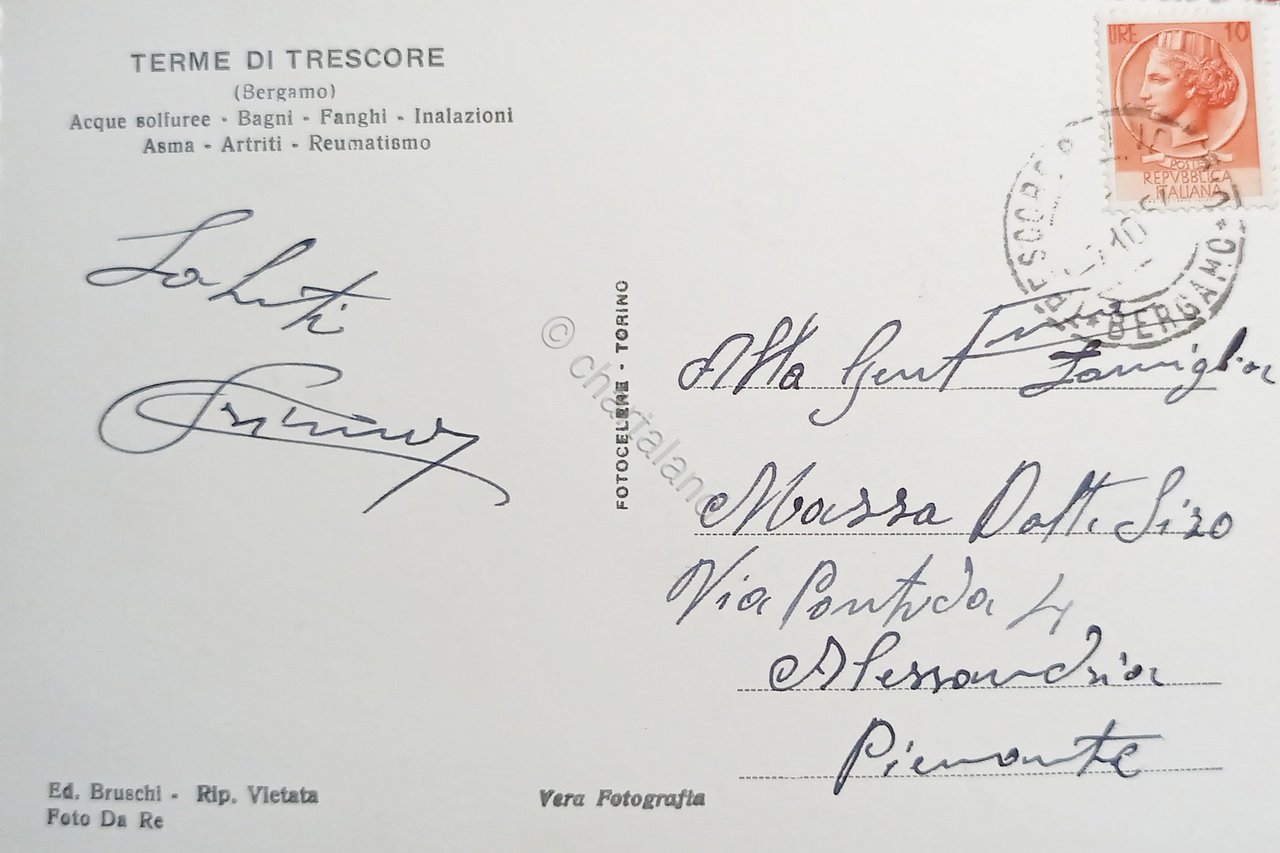 TERME DI TRESCORE
(Bergamo)
Acque solfuree - Bagni - Fanghi - Inalazioni
Asma - Artriti - Reumatismo
Saluti
LIRE 10
POSTE
REPVBBLICA
ITALIANA
BERGAMO
FOTOCELERE - TORINO
© chartaland
Alla Gent Famiglia
Massa Dott. Sizo
Via Pontida 4
Alessandria
Piemonte
Ed. Bruschi - Rip. Vietata
Foto Da Re
Vera Fotografia